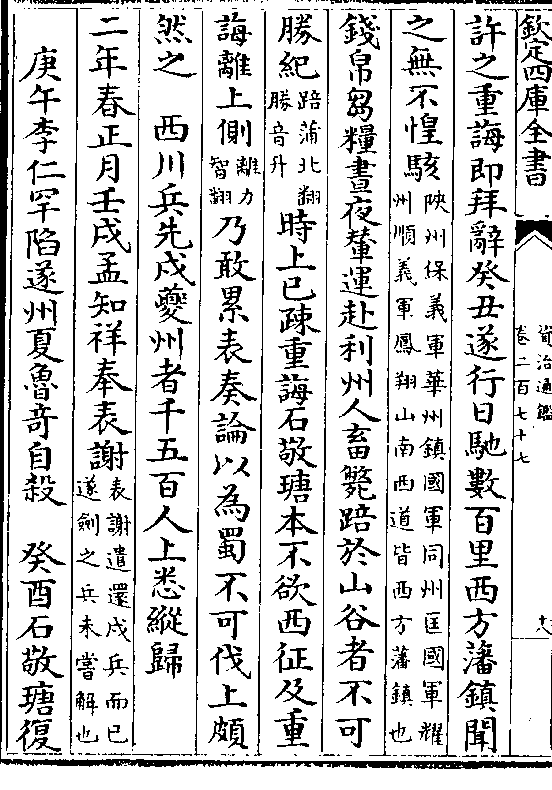 欽定四庫全書
資治通鑑
卷二百七十七
許之重誨即拜辭癸丑遂行日馳數百里西方藩鎮聞
之無不惶駭陜州保義軍華州鎮國軍同州匡國軍耀州順義軍鳳翔山南西道皆西方藩鎮也
錢帛芻糧晝夜輦運赴利州人畜斃踣於山谷者不可
勝紀踣蒲北翻勝音升時上已疎重誨石敬瑭本不欲西征及重
誨離上側離力智翻乃敢累表奏論以為蜀不可伐上頗
然之　西川兵先戍夔州者千五百人上悉縱歸
二年春正月壬戌孟知祥奉表謝表謝遣還戍兵而已遂劍之兵未嘗解也
庚午李仁罕陷遂州夏魯奇自殺　癸酉石敬瑭復